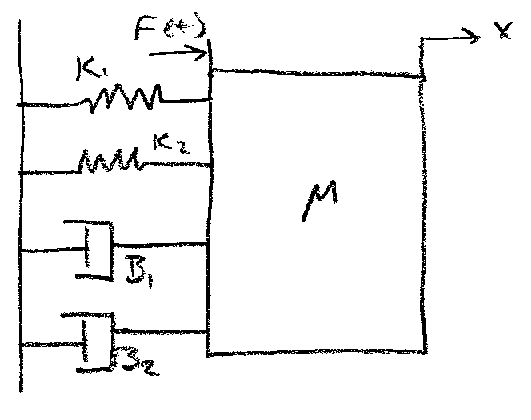 F(t)
x
K1
K2
M
B1
B2